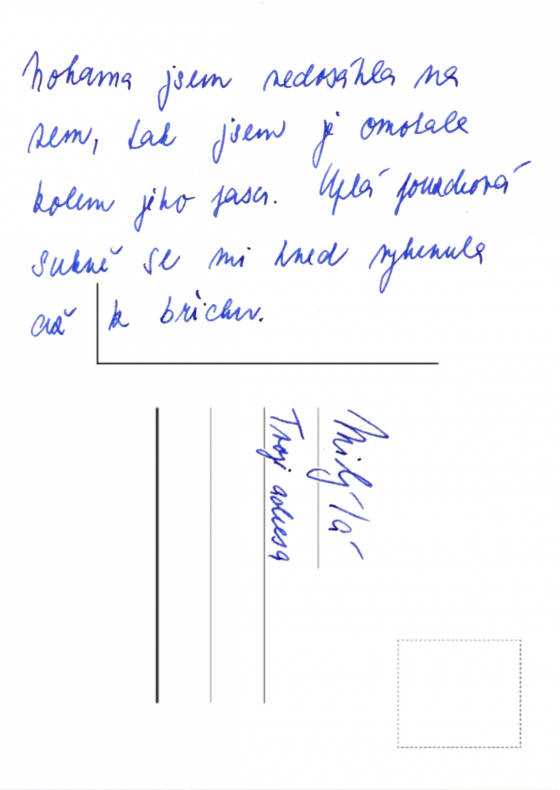 Nohama jsem nedosáhla na
zem, tak jsem je omotala
kolem jeho pasu. Úplá pouzdrová
sukně se mi hned vyhrnula
až k břichu.
Milý/á
Tvojí adresa